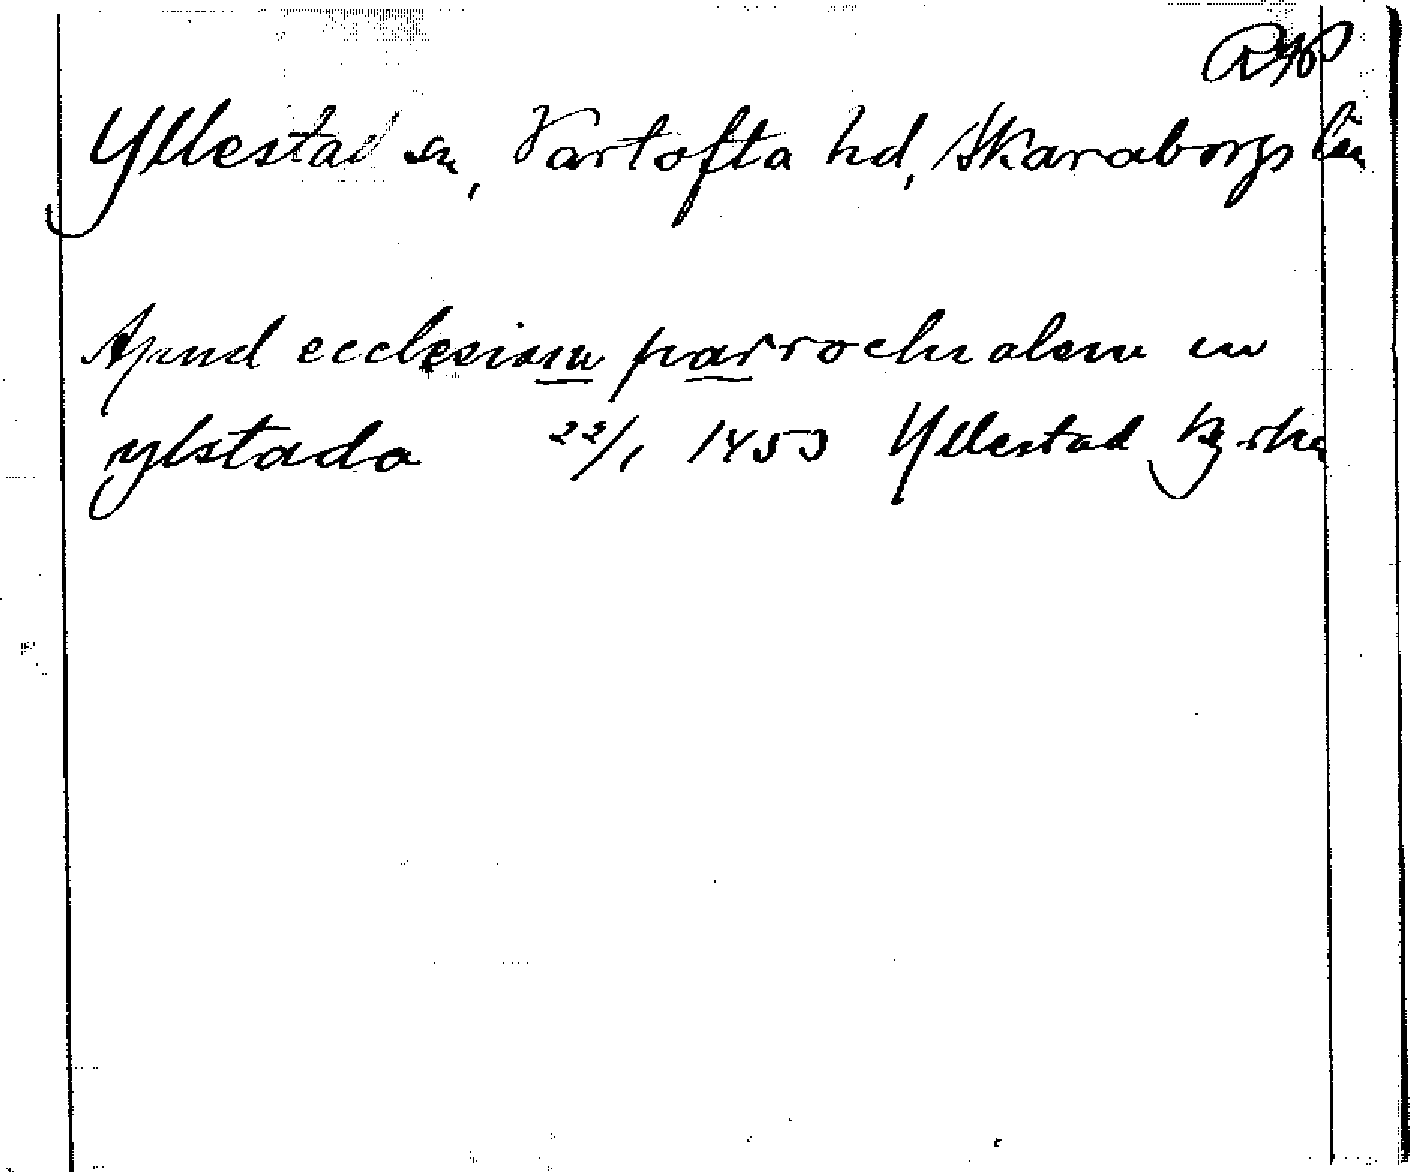 Yllestad sn, Vartofta hd, Skaraborgs län
Apud ecclesiam parrochialem in
ylstada 22/1 1453 Yllestad kyrka